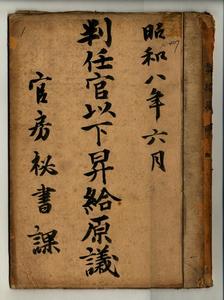 昭和八年六月
判任官以下昇給原議
官房祕書課